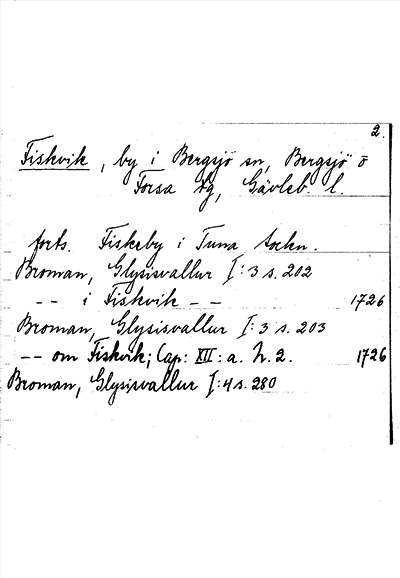 2.
Fiskvik, by i Bergsjö sn, Bergsjö o
Forsa tg, Gävleb. l.
forts. Fiskeby i Tuna sochn.
Broman, Glysisvallur I:3 s. 202
-- i Fiskvik -- 1726
Broman, Glysisvallur I:3 s. 203
-- om Fiskvik; Cap: XII: a. h. 2. 1726
Broman, Glysisvallur I:4 s. 280